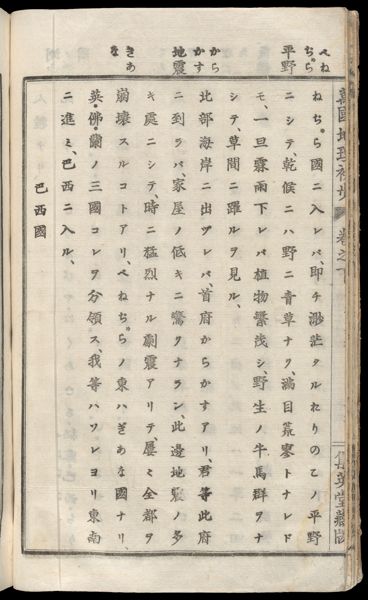 べね
ぢら
平野
から
かす
地震
ぎあ
な
萬國地理初歩 卷之下
ねぢら國ニ入レバ、即チ渺茫タルれりのこノ平野
ニシテ、乾候ニハ野ニ青草ナク、滿目荒寥トナレド
モ、一旦霖雨下レバ植物鬱茂シ、野生ノ牛馬群ヲナ
シテ、草間ニ躍ルヲ見ル、
北部海岸ニ出ヅレバ、首府からかすアリ、君等此府
ニ到ラバ、家屋ノ低キニ驚クナラン、此邊地震ノ多
キ處ニシテ、時ニ猛烈ナル劇震アリテ、屢々全都ヲ
崩壞スルコトアリ、べねぢらノ東ハぎあな國ナリ、
英・佛・蘭ノ三國コレヲ分領ス、我等ハソレヨリ東南
ニ進ミ、巴西ニ入ル、
巴西國